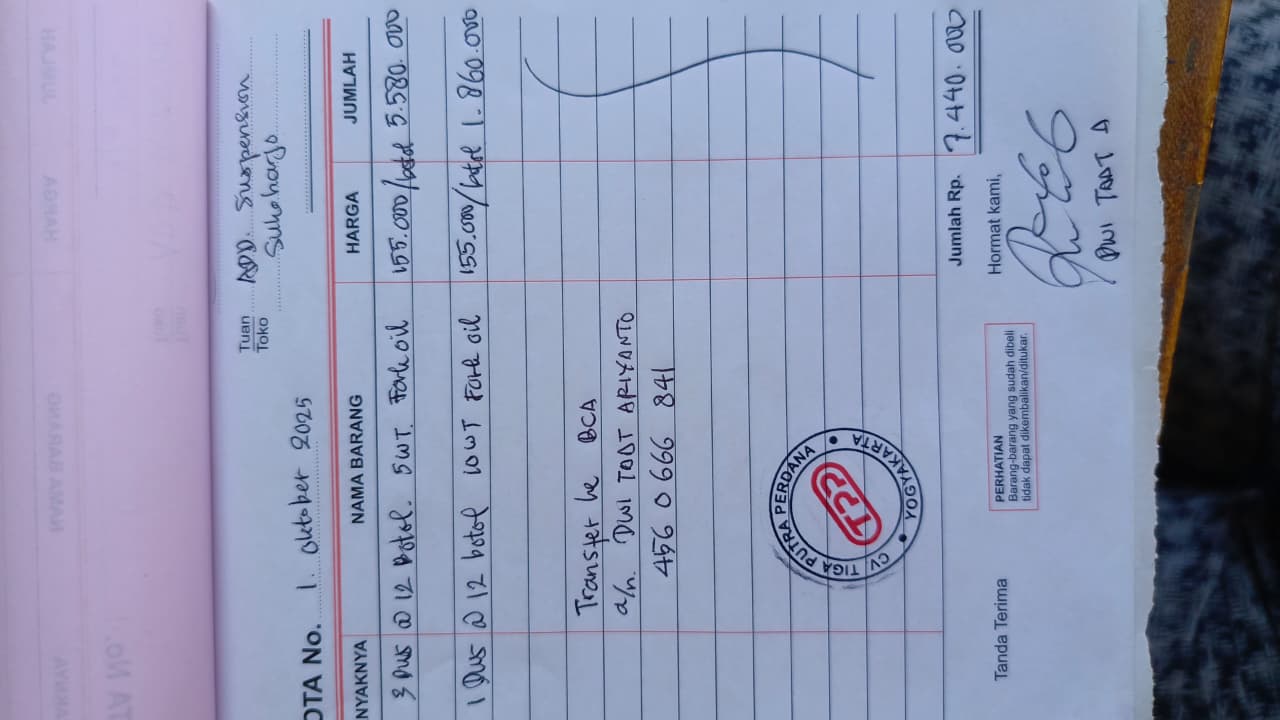 Tuan
Toko
ADD. Suspension
Sukoharjo
OTA No. 1. Oktober 2025
NYAKNYA NAMA BARANG HARGA JUMLAH
3 Dus @ 12 Botol. 5WT. Fork oil 155.000/botol 5.580.000
1 Dus @ 12 botol 10WT Fork oil 155.000/botol 1.860.000
Transfer ke BCA
a/n. DWI TAAT ARIYANTO
456 0666 841
CV. TIGA PUTRA PERDANA
TPP
YOGYAKARTA
Jumlah Rp. 7.440.000
Tanda Terima
PERHATIAN
Barang-barang yang sudah dibeli
tidak dapat dikembalikan/ditukar.
Hormat kami,
DWI TAAT A